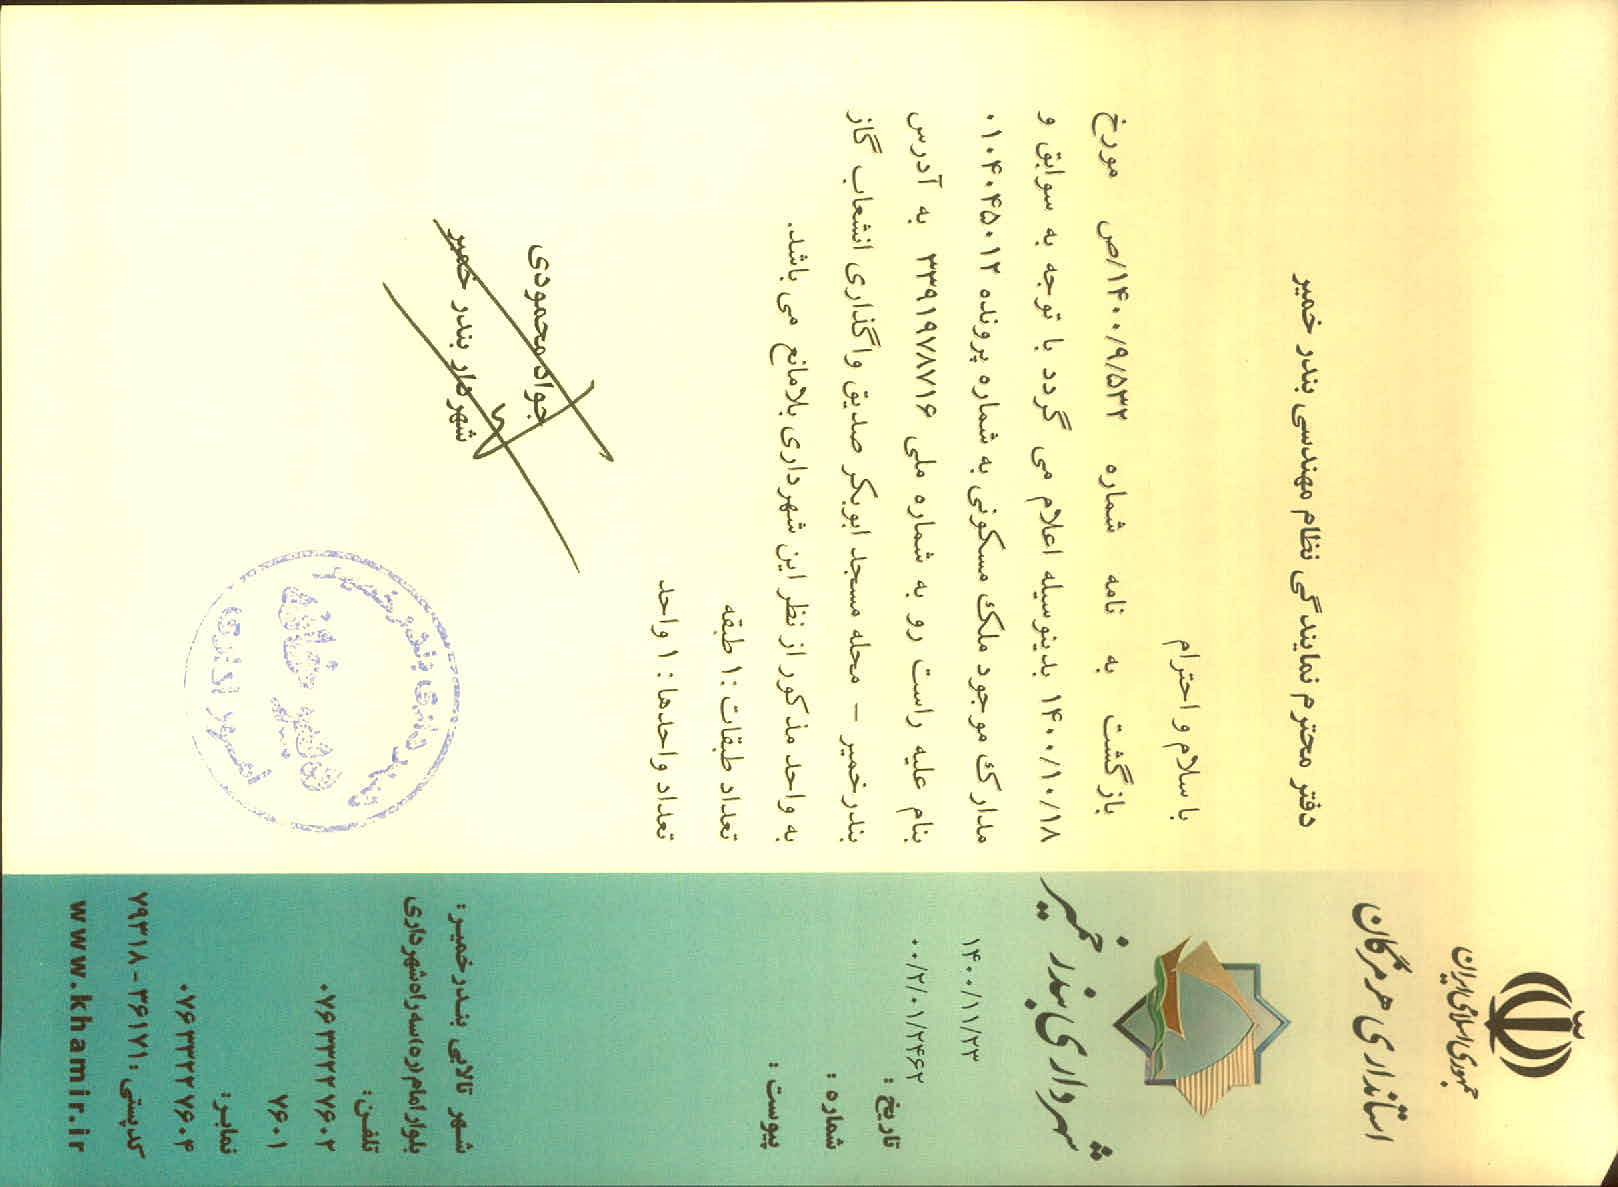 جمهوری اسلامی ایران
استانداری هرمزگان
شهرداری بندر خمیر
۱۴۰۰/۱۱/۲۳
۰۰/۲/۰۱/۲۴۶۲
تاریخ :
شماره :
پیوست :
دفتر محترم نمایندگی نظام مهندسی بندر خمیر
با سلام و احترام
بازگشت به نامه شماره ۱۴۰۰/۹/۵۳۲/ص مورخ
۱۴۰۰/۱۰/۱۸ بدینوسیله اعلام می گردد با توجه به سوابق و
مدارک موجود ملک مسکونی به شماره پرونده ۰۱۰۴۰۴۵۰۱۲
بنام علیه راست رو به شماره ملی ۳۳۹۱۹۷۸۷۱۶ به آدرس
بندرخمیر – محله مسجد ابوبکر صدیق واگذاری انشعاب گاز
به واحد مذکور از نظر این شهرداری بلامانع می باشد.
تعداد طبقات :۱ طبقه
تعداد واحدها : ۱ واحد
جواد محمودی
شهردار بندر خمیر
شهر تالابی بندرخمیر :
بلوار امام (ره)سه راه شهرداری
تلفن:
۰۷۶۳۳۲۲۷۶۰۲
۷۶۰۱
نمابر:
۰۷۶۳۳۲۲۷۶۰۴
کد پستی : ۳۶۱۷۱-۷۹۳۱۸
www.khamir.ir